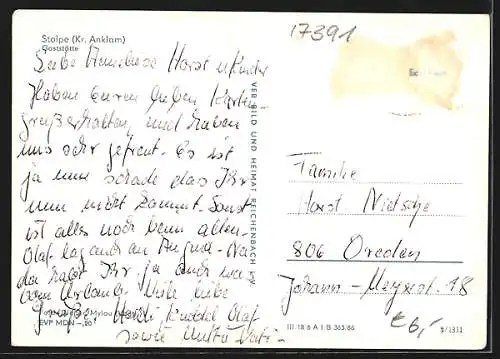 17391
Stolpe (Kr. Anklam)
Gaststätte
Liebe Anneliese Horst u Kinder
Haben Euren lieben Karten-
gruß erhalten, und haben
uns sehr gefreut. Es ist
ja nun schade das Ihr
nun nicht kommt. Sonst
ist alles noch beim alten.
Olaf lag auch an Angina. Na
da habt Ihr ja auch was
vom Urlaub. Viele liebe
Grüße, Heidi Olaf
sowie Mutti Vati.
EVP MDN –,20
VEB BILD UND HEIMAT REICHENBACH i. V.
Familie
Horst Nietsche
806 Dresden
Johann-Meyerst. 18
€6,-
III 18 6 A 1 B 363/66
9/1313